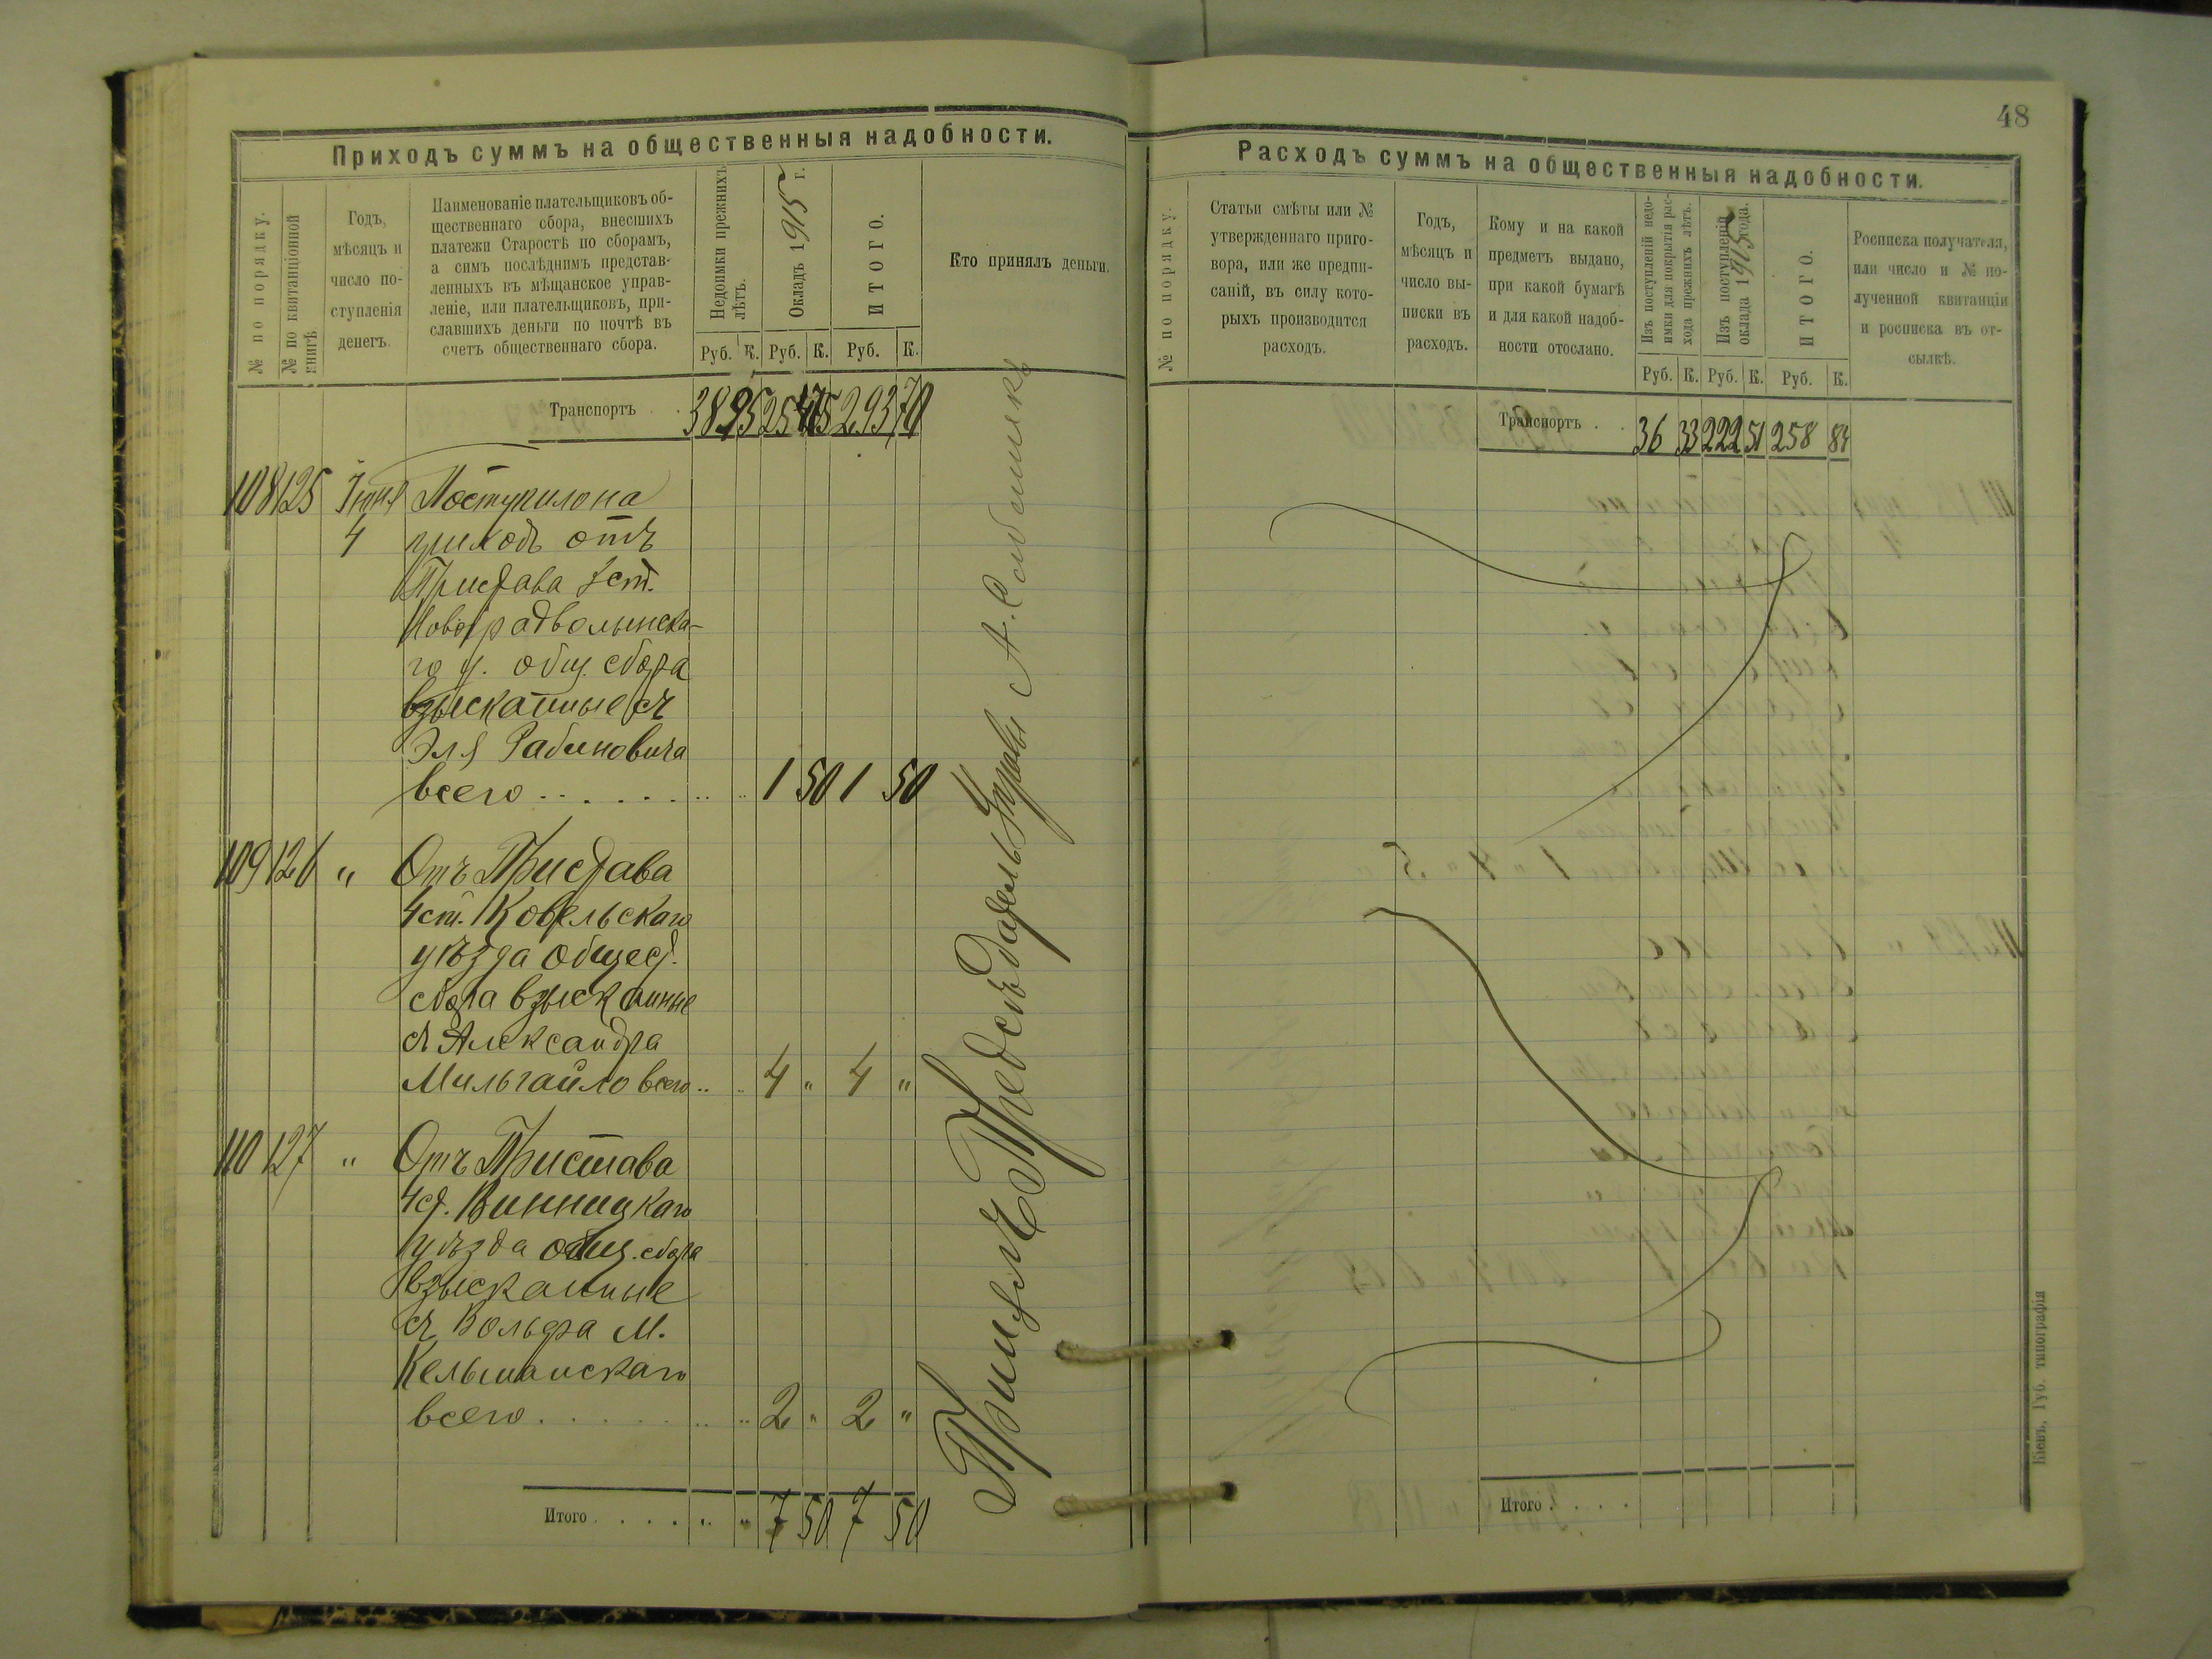 48
Приходъ суммъ на общественныя надобности.
№ по порядку.
№ по квитанціонной книгѣ
Годъ,
мѣсяцъ и
число по-
ступленія
денегъ.
Наименованіе плательщиковъ об-
щественнаго сбора, внесшихъ
платежи Старостѣ по сборамъ,
а симъ послѣднимъ представ-
ленныхъ въ мѣщанское управ-
леніе, или плательщиковъ, при-
славшихъ деньги по почтѣ въ
счетъ общественнаго сбора.
Недоимки прежнихъ
лѣтъ.
Окладъ 1915 г.
ИТОГО.
Кто принялъ деньги.
Руб. К. Руб. К. Руб. К.
Транспортъ . . 38 95 254 75 293 70
108 125 Іюня Поступило на
4 приходъ отъ
Пристава ст.
Новоградволынска-
го у. общ. сбора
взысканные съ
Эля Рабиновича
всего . . . . . . " " 1 50 1 50
109 126 " Отъ Пристава
4 ст. Ковельскаго
уѣзда общест.
сбора взысканные
съ Александра
Мильгайло всего " " 4 " 4 "
110 127 " Отъ Пристава
4 ст. Винницкаго
уѣзда общ. сбора
взысканные
съ Вольфа М.
Кельманскаго
всего . . . . . . " " 2 " 2 "
Итого . . . . " " 7 50 7 50
Принялъ Предсѣдатель Управы А.
Расходъ суммъ на общественныя надобности.
№ по порядку.
Статьи смѣты или №
утвержденнаго приго-
вора, или же предпи-
саній, въ силу кото-
рыхъ производится
расходъ.
Годъ,
мѣсяцъ и
число вы-
писки въ
расходъ.
Кому и на какой
предметъ выдано,
при какой бумагѣ
и для какой надоб-
ности отослано.
Изъ поступленій недо-
имки для покрытія рас-
хода прежнихъ лѣтъ.
Изъ поступленій
оклада 1915 года.
ИТОГО.
Росписка получателя,
или число и № по-
лученной квитанціи
и росписка въ от-
сылкѣ.
Руб. К. Руб. К. Руб. К.
Транспортъ . . 36 33 222 51 258 84
Итого . . . .
Кіевъ, Губ. типографія